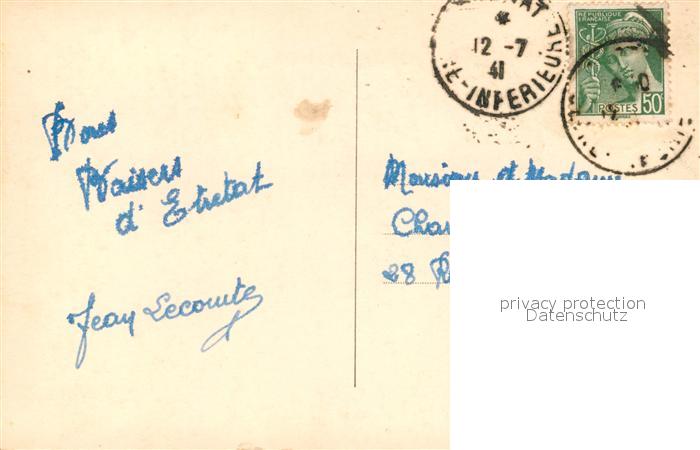 Bons
Baisers
d'Etretat
Jean Lecomte
12-7
41
RE-INFERIEURE
RÉPUBLIQUE
FRANÇAISE
POSTES 50
Monsieur et Madame
28
privacy protection
Datenschutz